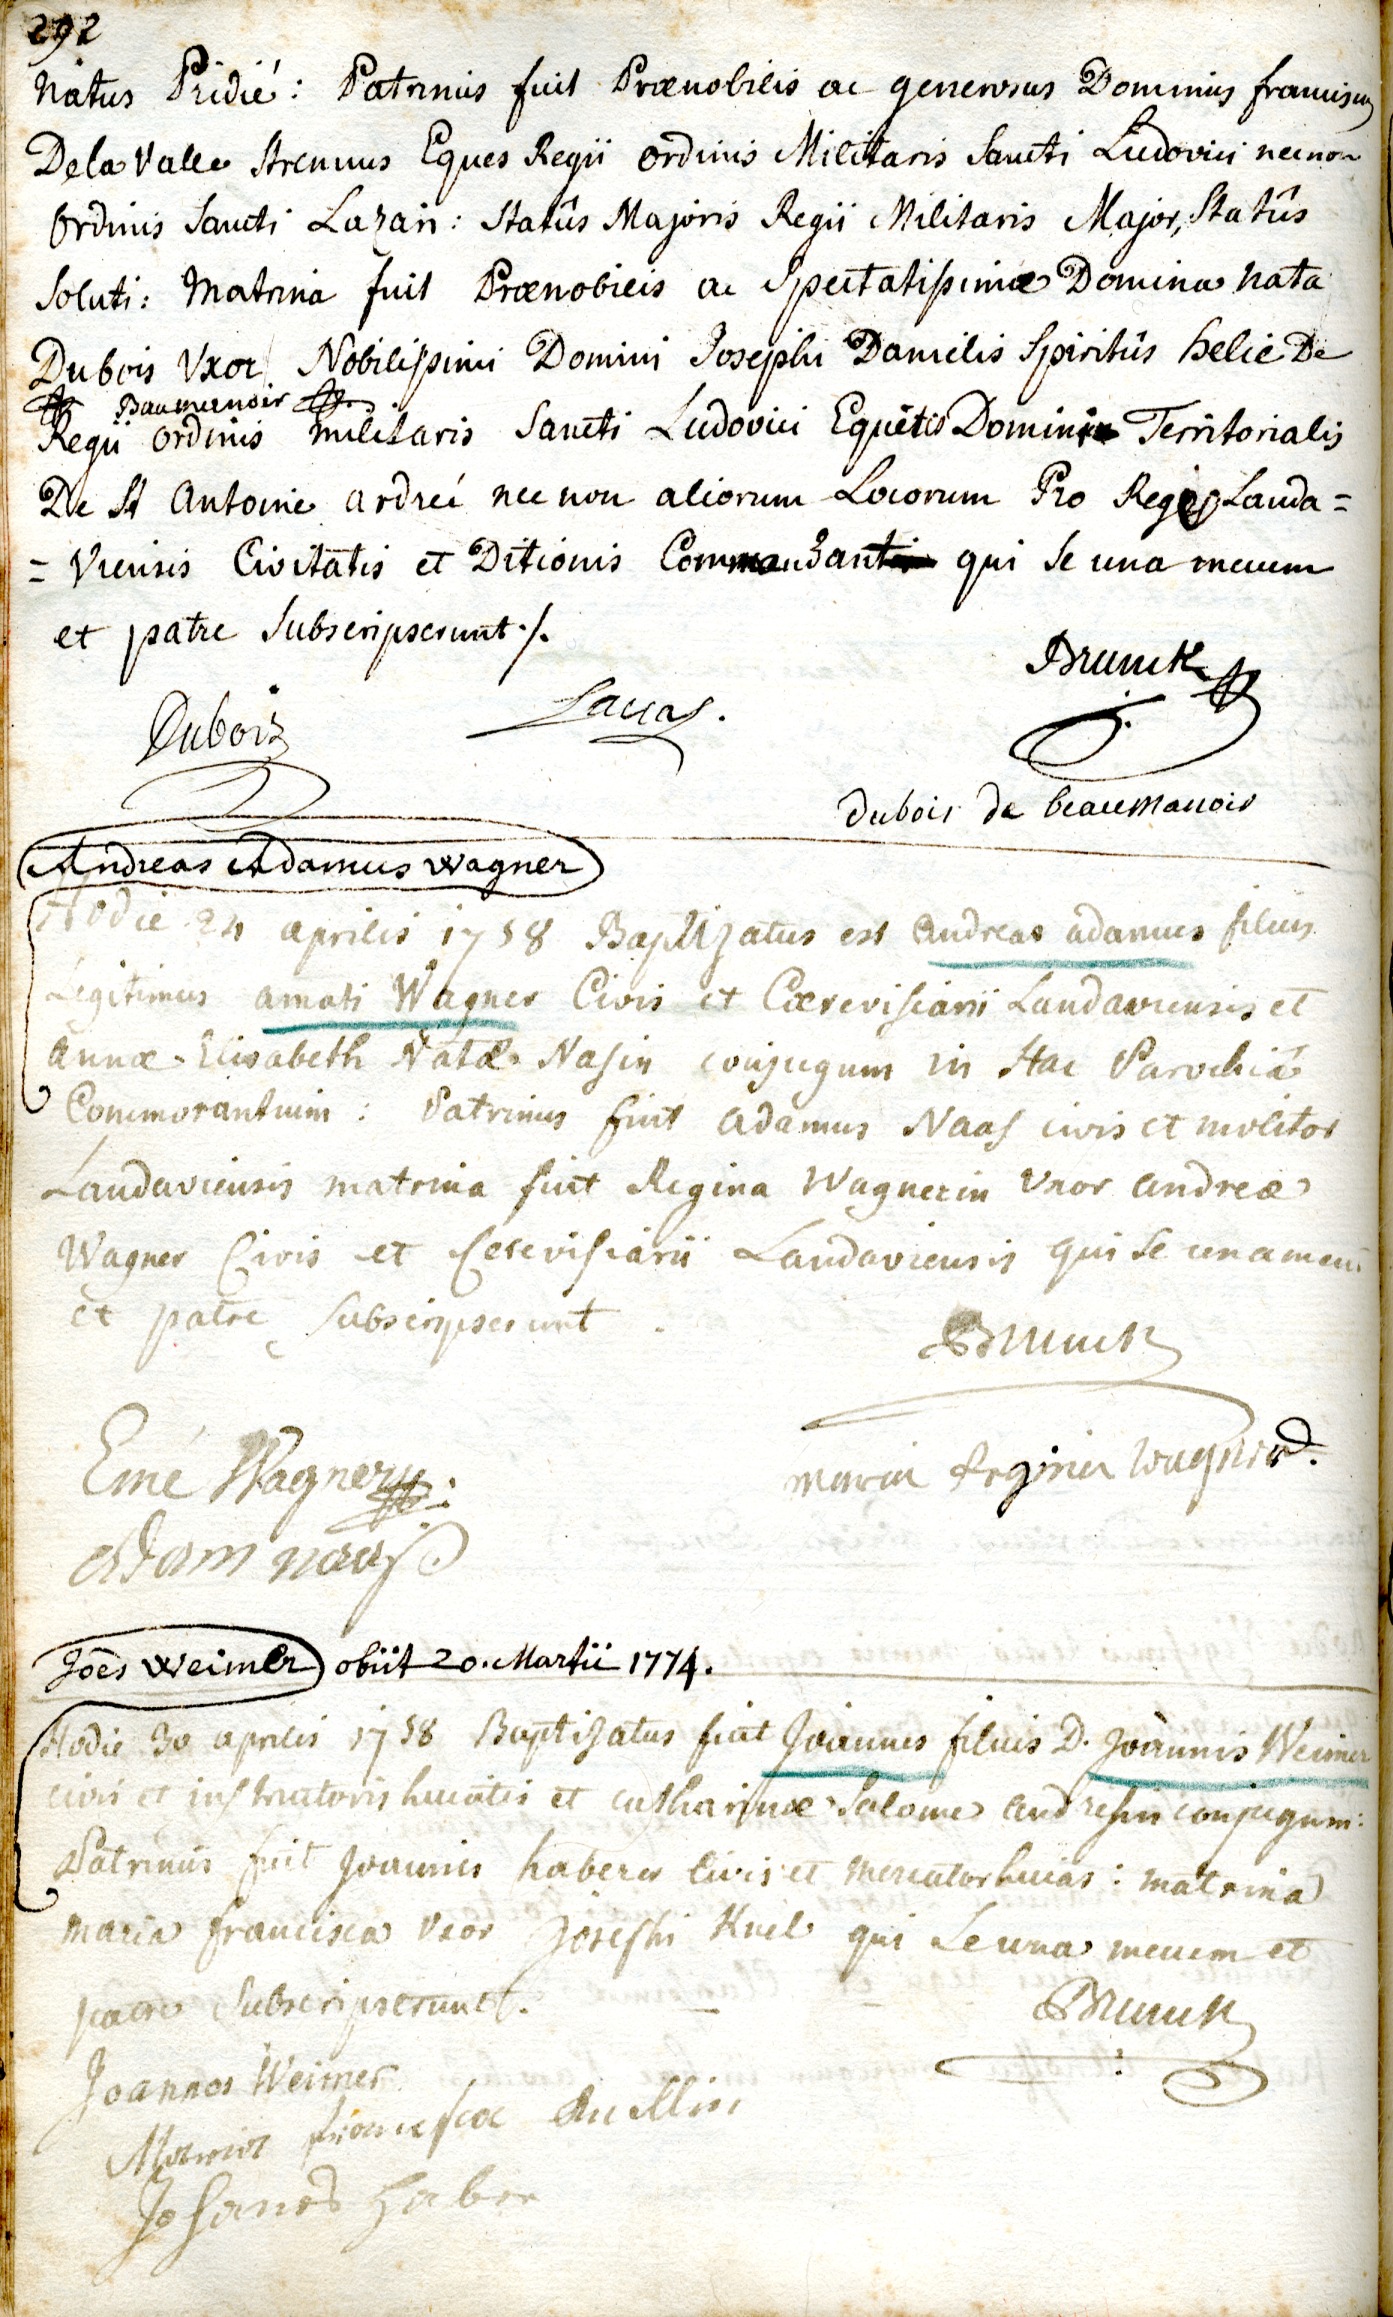 292
Natus Pridié: Patrinus fuit Prænobilis ac generosus Dominus franciscus
Dela Valle strenuus Eques Regii ordinis Militaris Sancti Ludovici necnon
Ordinis Sancti Lazari: Statûs Majoris Regii Militaris Major, Statûs
Soluti: Matrina fuit Prænobilis ac Spectatissima Domina nata
Dubois Uxor Nobilissimi Domini Josephi Danielis Spiritûs helie De
Baumenoir
Regii ordinis militaris Sancti Ludovici Equitis Domini Territorialis
De St Antoine ardreé nec non aliorum Locorum Pro Rege Landa=
=Viensis Civitatis et Ditionis Commandant qui se una mecum
et patre Subscripserunt ./.
Brunck
Dubois
dubois de beaumanoir
Andreas Adamus Wagner
Hodie 24 aprilis 1758 Baptizatus est andreas adamus filius
Legitimus amati Wagner Civis et Cærevisiarii Landaviensis et
annæ Elisabeth Natæ Nasin conjugum in Hac Parochiâ
Commorantium: Patrinus fuit adamus Naas civis et molitor
Landaviensis matrina fuit Regina Wagnerin Uxor andreæ
Wagner Civis et Cerevisiarii Landaviensis qui se una mecu
et patre Subscripserunt.
Brunck
Emé Wagner
maria Regina Wagner
Adam naus
Joês Weimer obiit 20. Martii 1774.
Hodie 30 aprilis 1758 Baptizatus fuit Joannes filius D. Joannis Weimer
civis et instructoris hucatis et catharinæ Salome andresin conjugum:
Patrinus fuit Joannes haberer civis et mercator hucas: matrina
maria francisca Uxor Josephi Knel qui se una mecum et
patre Subscripserunt.
Brunck
Joannes Weimer
Maria francisca
Johanes Haber